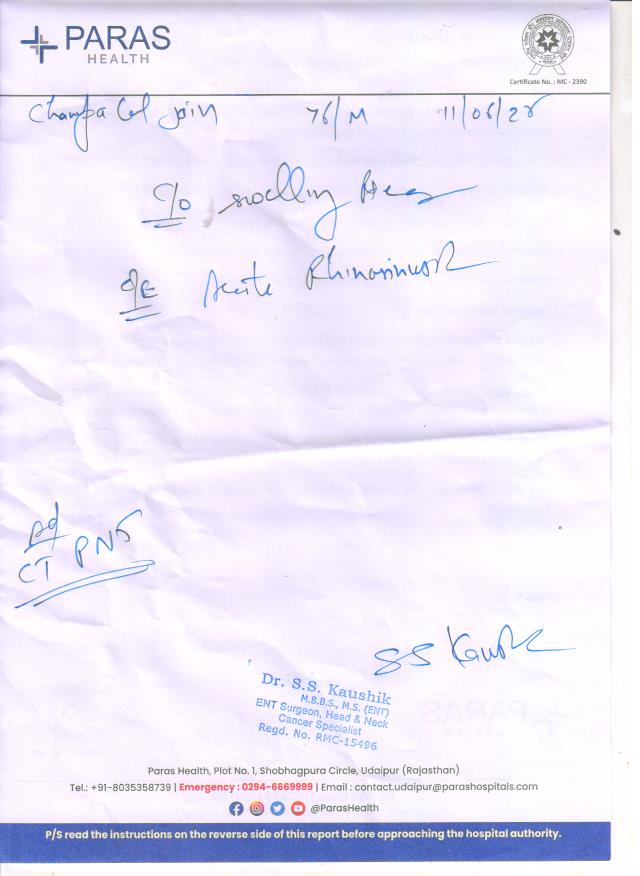 PARAS
HEALTH
Certificate No. : MC - 2390
Champa Lal Jain 76/M 11/06/25
C/o swelling
O/E Acute Rhinosinusitis
Ad
CT PNS
SS Kaushik
Dr. S.S. Kaushik
M.B.B.S., M.S. (ENT)
ENT Surgeon, Head & Neck
Cancer Specialist
Regd. No. RMC-15496
Paras Health, Plot No. 1, Shobhagpura Circle, Udaipur (Rajasthan)
Tel.: +91-8035358739 | Emergency : 0294-6669999 | Email : contact.udaipur@parashospitals.com
@ParasHealth
P/S read the instructions on the reverse side of this report before approaching the hospital authority.